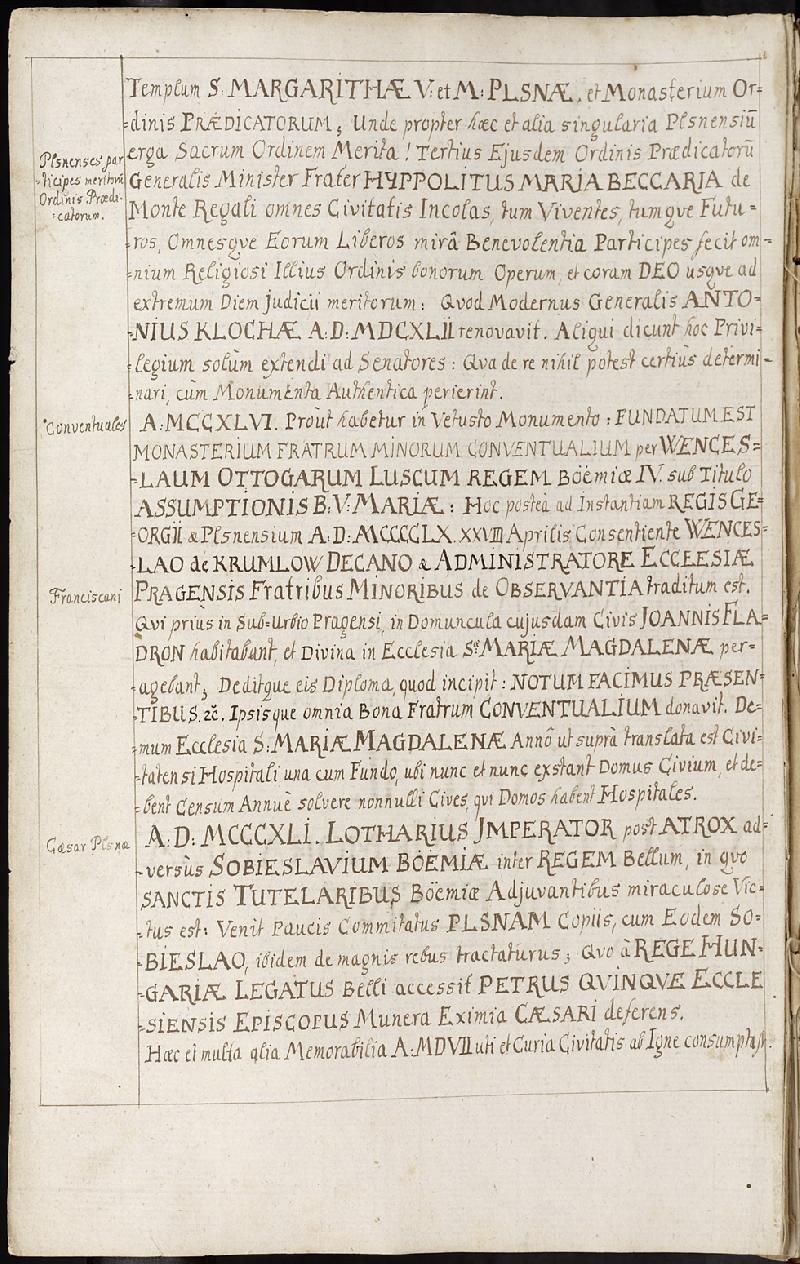 Templum S: MARGARITHÆ V: et M: PLSNÆ, et Monasterium Or=
=dinis PRÆDICATORUM; Unde propter hæc et alia singularia Plsnensiū
erga Sacrum Ordinem Merita! Tertius Ejusdem Ordinis Prædicatorū
Generalis Minister Frater HYPPOLITUS MARIA BECCARIA de
Monte Regali omnes Civitatis Incolas, tum Viventes, tumqve Futu=
=ros, Omnesqve Eorum Liberos mirâ Benevolentia Participes fecit om=
=nium Religiosi Illius Ordinis bonorum Operum, et coram DEO usqve ad
extremum Diem Judicii meritorum: Qvod Modernus Generalis ANTO=
=NIUS KLOCHÆ A:D: MDCXLII renovavit. Aliqui dicunt hoc Privi=
=legium solùm extendi ad Senatores: Qva de re nihil potest certiùs determi=
=nari, cùm Monumenta Authentica perierint.
Plsnenses par
=ticipes meritorū
Ordinis Prædi-
=catorum.
A: MCCXLVI. Proùt habetur in Vetusto Monumento: FUNDATUM EST
MONASTERIUM FRATRUM MINORUM CONVENTUALIUM per WENCES=
=LAUM OTTOGARUM LUSCUM REGEM Böëmiæ IV. sub Titulo
ASSUMPTIONIS B: V: MARIÆ: Hoc posteà ad Instantiam REGIS GE=
=ORGII & Plsnensium A:D: MCCCCLX. XXVIII Aprilis Consentiente WENCES=
=LAO de KRUMLOW DECANO & ADMINISTRATORE ECCLESIÆ
PRAGENSIS Fratribus MINORIBUS de OBSERVANTIA traditum est.
Conventuales
Qvi priùs in Sub-urbio Pragensi, in Domuncula cujusdam Civis JOANNIS FLA=
DRON habitabant, et Divina in Ecclesia Sæ MARIÆ MAGDALENÆ per=
=agebant; Deditque eis Diploma, quod incipit: NOTUM FACIMUS PRÆSEN=
=TIBUS. Ipsisque omnia Bona Fratrum CONVENTUALIUM donavit. De=
mum Ecclesia S: MARIÆ MAGDALENÆ Annô ut suprà translata est Civi=
=tatensi Hospitali una cum Fundo, ubi nunc et nunc exstant Domus Civium, et de=
=bent Censum Annuè solvere nonnulli Cives, qvi Domos habent Hospitales.
Franciscani
A:D: MCCCXLI. LOTHARIUS IMPERATOR post ATROX ad=
=versùs SOBIESLAVIUM BÖEMIÆ inter REGEM Bellum, in qvo
SANCTIS TUTELARIBUS Böëmiæ Adjuvantibus miraculose Vic=
=tus est: Venit Paucis Commitatus PLSNAM Copiis, cum Eodem SO=
=BIESLAO, ibidem de magnis rebus tractaturus; Quo à REGE HUN=
=GARIÆ LEGATUS Belli accessit PETRUS QVINQVE ECCLE
=SIENSIS EPISCOPUS Munera Eximia CÆSARI deferens.
Hæc et multa alia Memorabilia A: MDVII uti et Curia Civitatis ab Igne consumpta
Cæsar Plsnæ